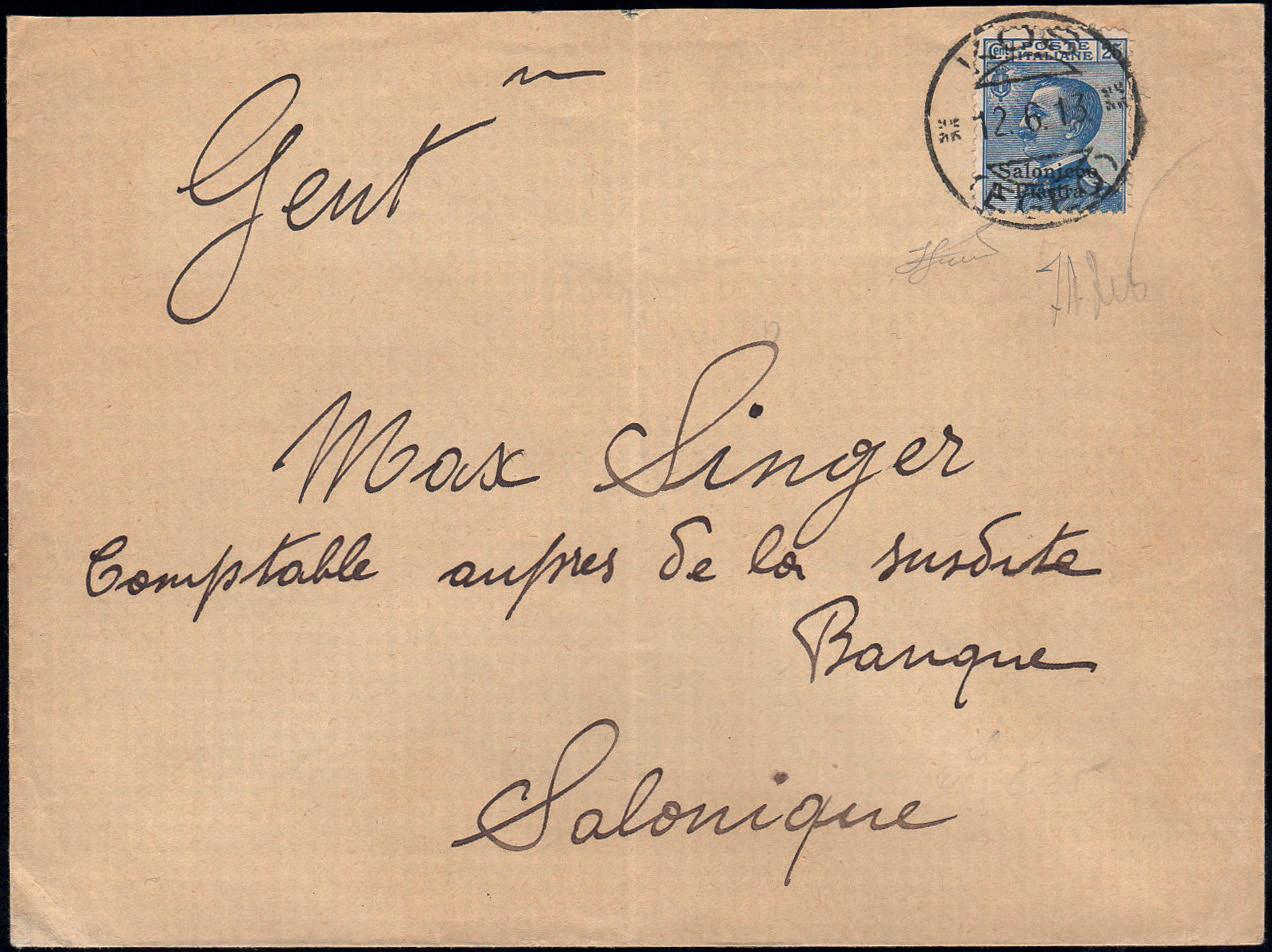 KOS
Cent POSTE 25
ITALIANE
12.6.13
Salonicco
1 Piastra
(EGEO)
Gent
Max Singer
Comptable aupres de la susdite
Banque
Salonique